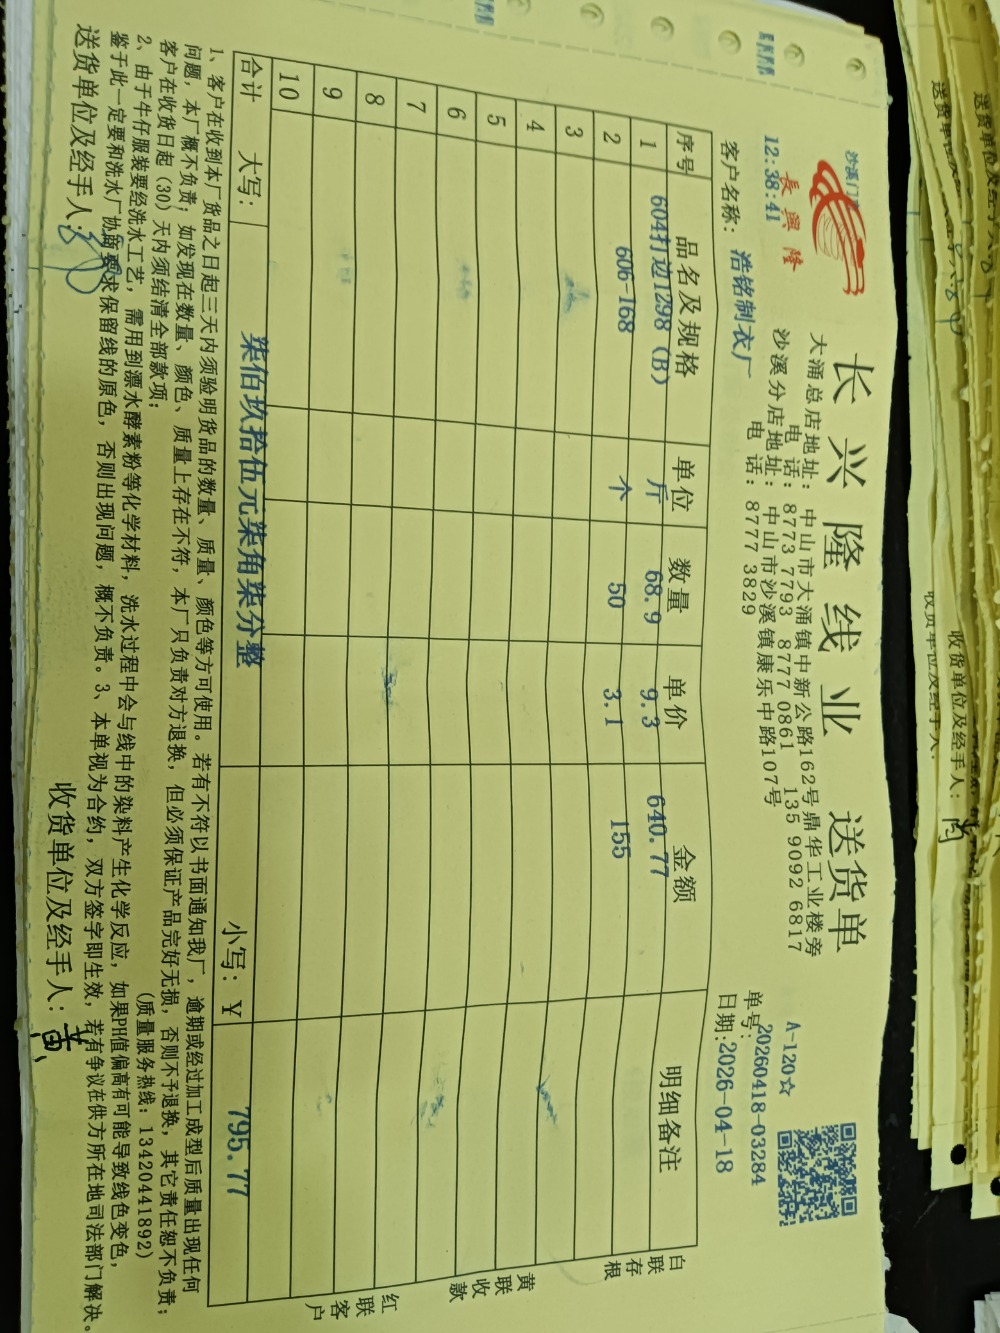 长兴隆线业 送货单
沙溪门
12:38:41
長興隆
大涌总店地址：中山市大涌镇中新公路162号鼎华工业楼旁
电话：8773 7793 8777 0861 135 9092 6817
沙溪分店地址：中山市沙溪镇康乐中路107号
电话：8777 3829
A-120☆
单号：20260418-03284
客户名称：浩铭制衣厂
日期：2026-04-18
序号 品名及规格 单位 数量 单价 金额 明细备注
1 604打边1298（B） 斤 68.9 9.3 640.77
2 606-168 个 50 3.1 155
3
4
5
6
7
8
9
10
合计 大写：柒佰玖拾伍元柒角柒分整 小写：￥ 795.77
白联存根
黄联收款
红联客户
1、客户在收到本厂货品之日起三天内须验明货品的数量、质量、颜色等方可使用。若有不符以书面通知我厂，逾期或经过加工成型后质量出现任何
问题，本厂概不负责；如发现在数量、颜色、质量上存在不符，本厂只负责对方退换，但必须保证产品完好无损，否则不予退换，其它责任恕不负责；
客户在收货日起（30）天内须结清全部款项；
（质量服务热线：13420441892）
2、由于牛仔服装要经洗水工艺，需用到漂水酵素粉等化学材料，洗水过程中会与线中的染料产生化学反应，如果PH值偏高有可能导致线色变色，
鉴于此一定要和洗水厂协商要求保留线的原色，否则出现问题，概不负责。3、本单视为合约，双方签字即生效，若有争议在供方所在地司法部门解决。
送货单位及经手人：
收货单位及经手人：黄
送货单位及经手人：
收货单位及经手人：
收货单位及经手人：